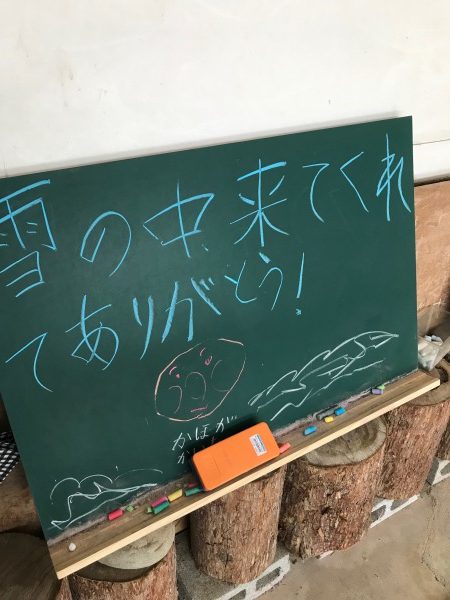 雪の中、来てくれ
てありがとう!
かほが